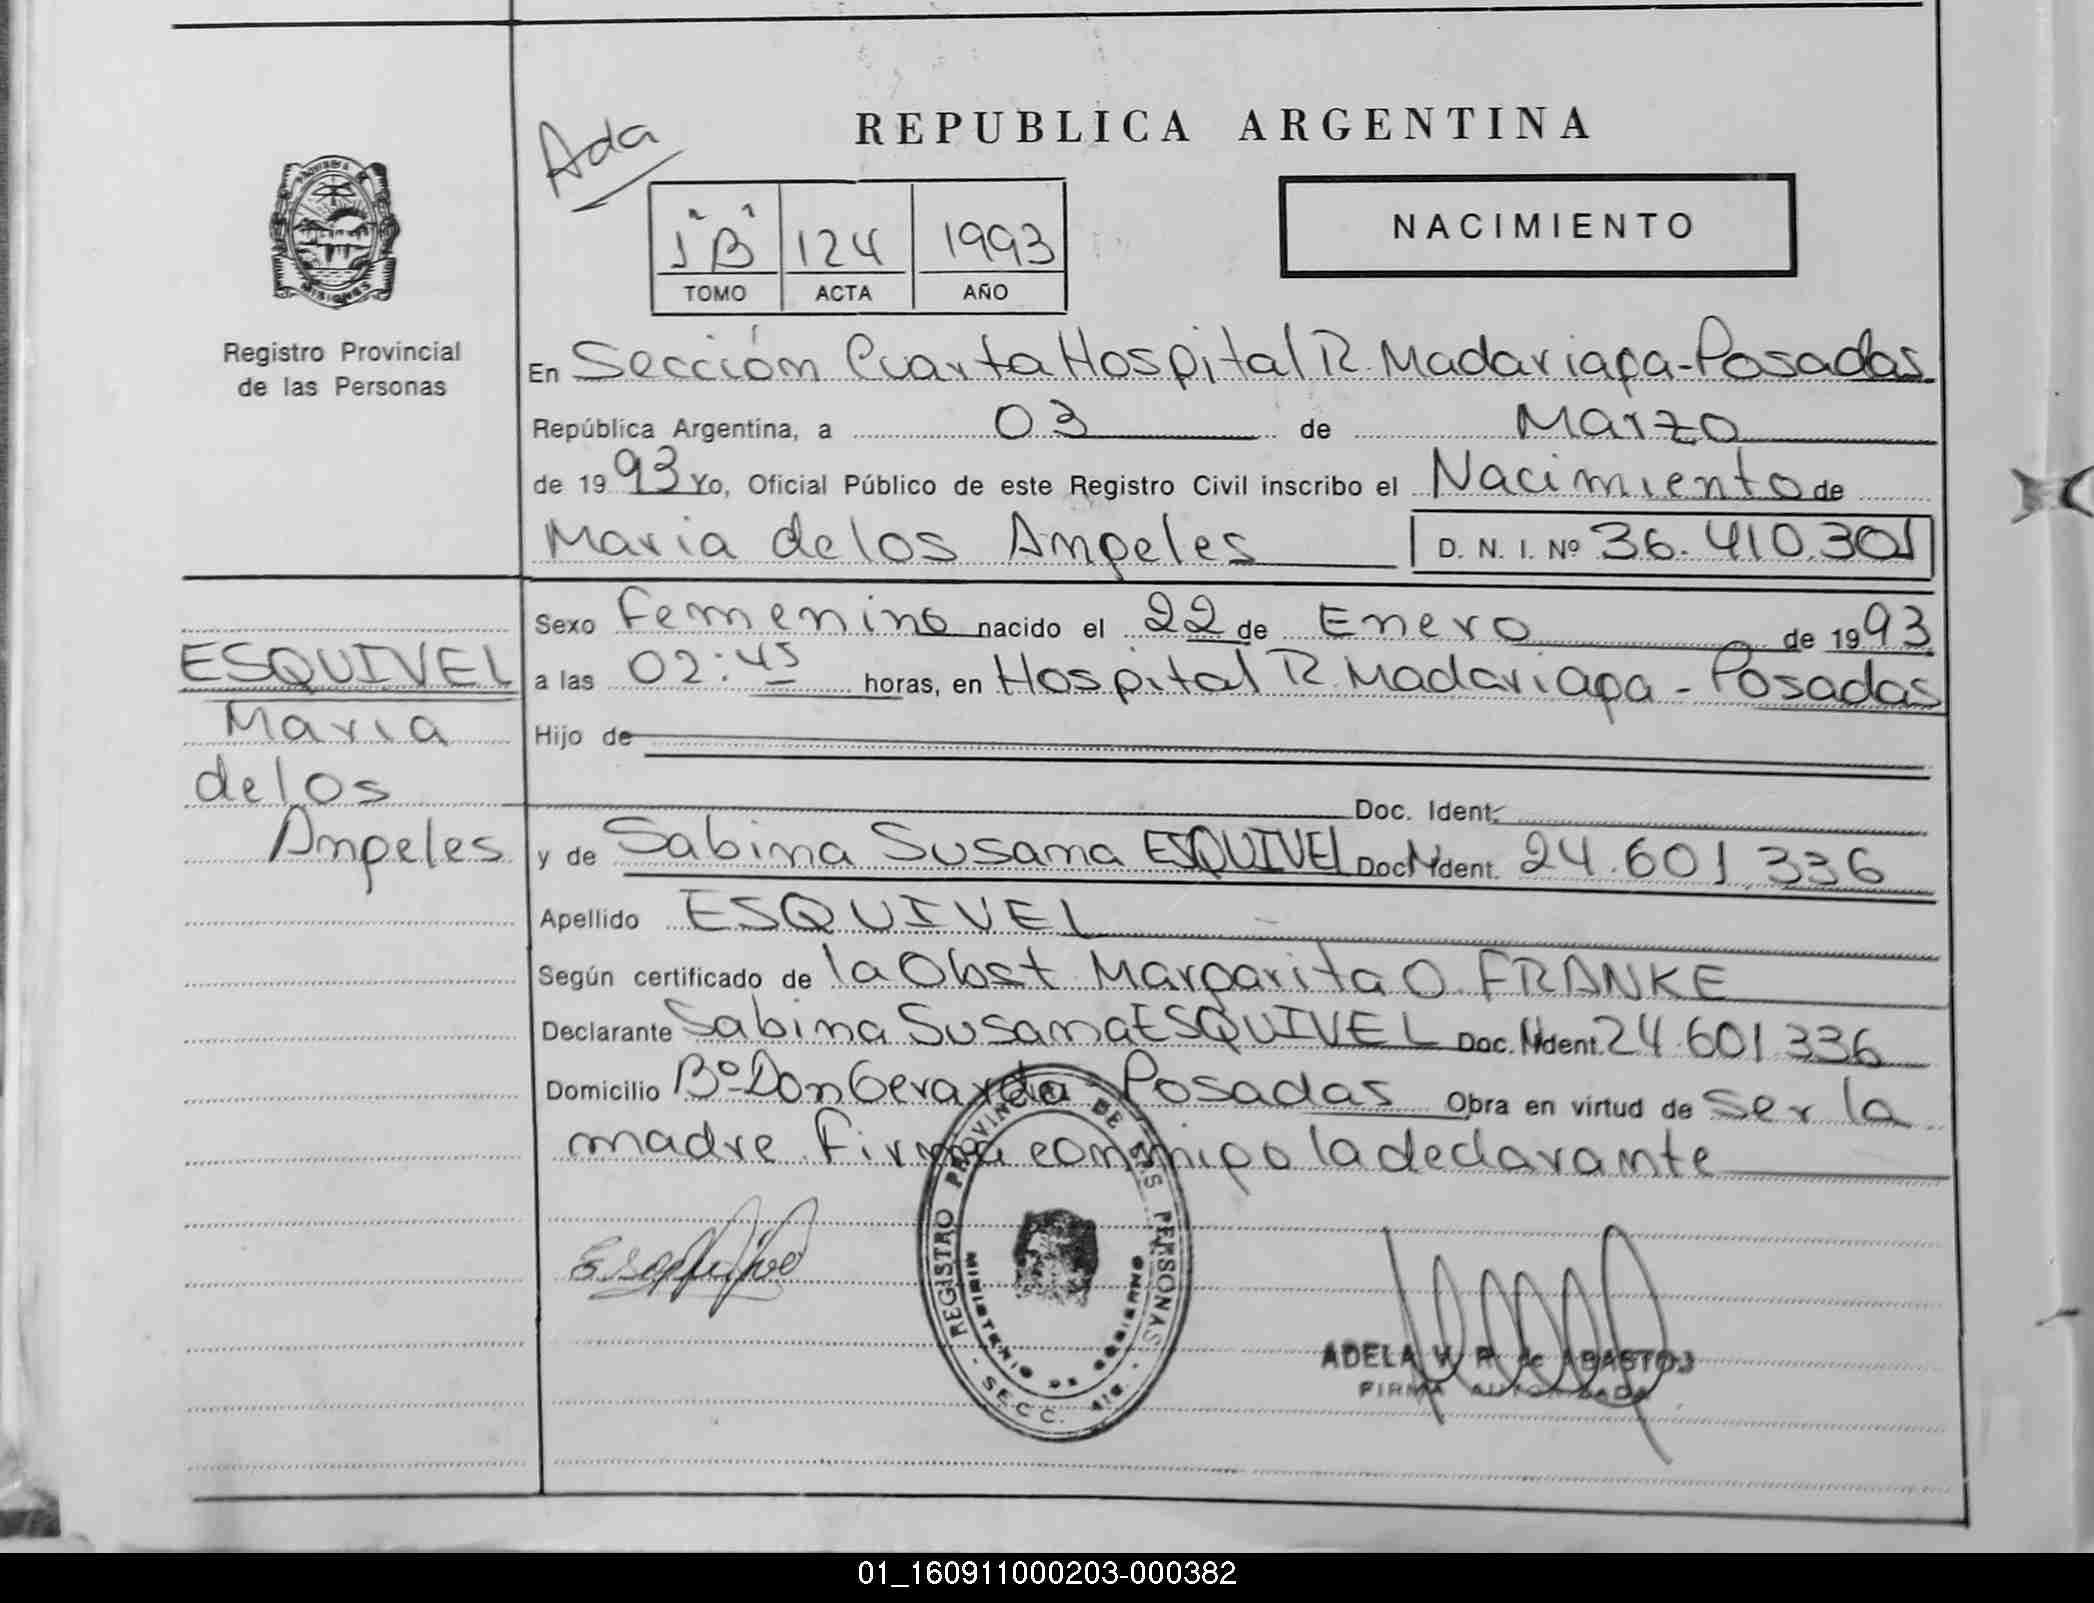 Ada
REPUBLICA ARGENTINA
"1"
B 124 1993
TOMO ACTA AÑO
NACIMIENTO
MISIONES
Registro Provincial
de las Personas
En Sección Cuarta Hospital R. Madariaga-Posadas
República Argentina, a 03 de Marzo
de 1993 Yo, Oficial Público de este Registro Civil inscribo el Nacimiento de
Maria de los Angeles D. N. I. Nº 36.410.301
Sexo Femenino nacido el 22 de Enero de 1993
a las 02:45 horas, en Hospital R. Madariaga - Posadas
Hijo de
Doc. Ident.
y de Sabina Susana ESQUIVEL Doc. Ident. 24.601.336
Apellido ESQUIVEL
Según certificado de la Obst. Margarita O. FRANKE
Declarante Sabina Susana ESQUIVEL Doc. Ident. 24.601.336
Domicilio Bº Don Gerardo - Posadas Obra en virtud de Ser la
madre. Firma conmigo la declarante
ESQUIVEL
Maria
de los
Angeles
Esquivel
REGISTRO PROVINCIAL DE LAS PERSONAS
MINISTERIO DE GOBIERNO
SECC. 4ta.
ADELA de ABASTOS
FIRMA AUTORIZADA
01_160911000203-000382